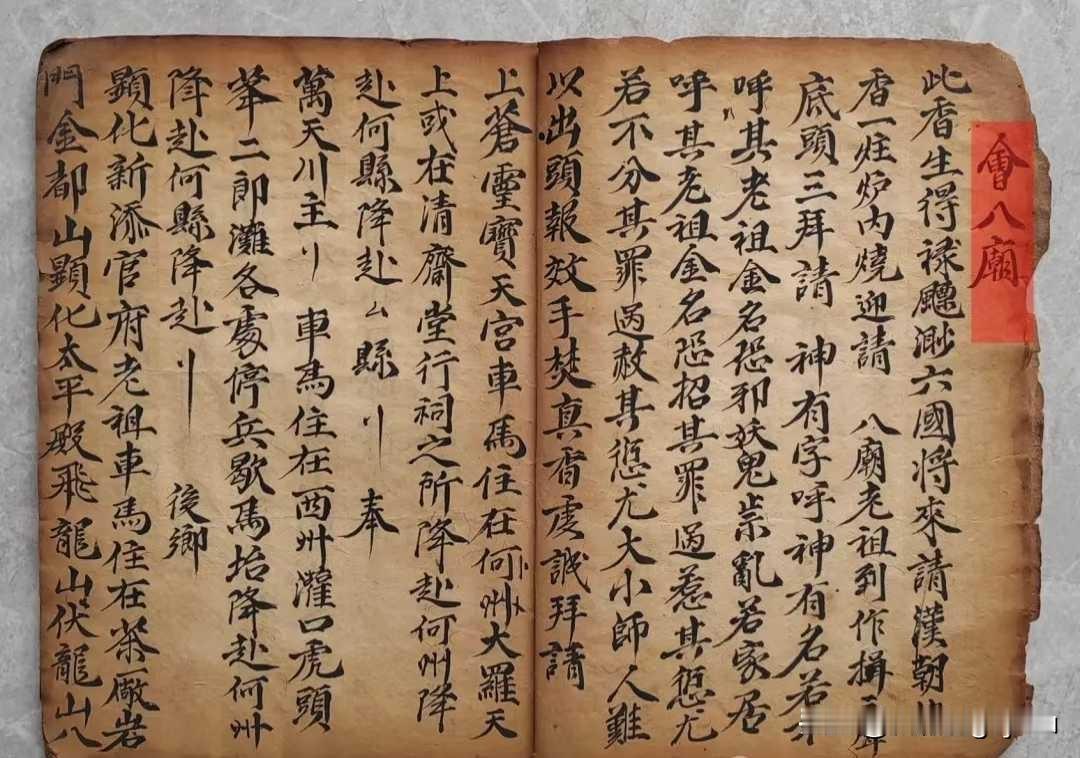 會八廟
此香生得禄飃渺六國将來請漢朝
香一炷炉内燒迎請　八廟老祖到作揖
底頭三拜請　神有字呼神有名若不
呼其老祖金名恐邪妖鬼祟亂若家居
呼其老祖金名恐招其罪過惹其愆尤
若不分其罪過赦其愆尤大小師人難
以出頭報效手焚真香虔誠拜請
上蒼靈寶天宮車馬住在何州大羅天
上或在清齋堂行祠之所降赴何州降
赴何縣降赴厶縣刂　奉
萬天川主刂　車馬住在西州灌口虎頭
峯二郎灘各處停兵歇馬抬降赴何州
降赴何縣降赴刂　後鄉
顯化新添官府老祖車馬住在茶厰岩
門金都山顯化太平殿飛龍山伏龍山八